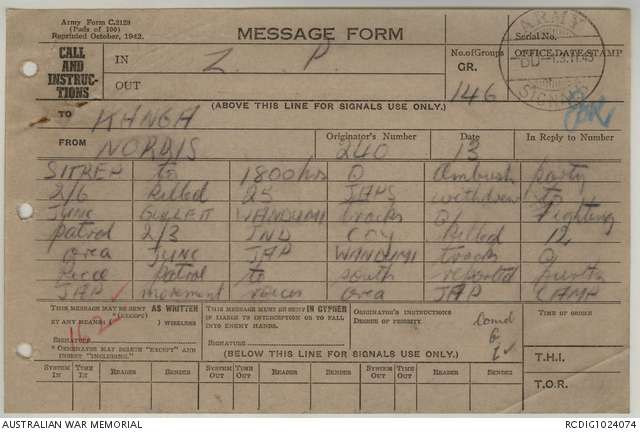 Army Form C.2129
(Pads of 100)
Reprinted October, 1942.
MESSAGE FORM
Serial No.
CALL
AND
INSTRUC-
TIONS
IN
Z P
OUT
No. of Groups
GR.
146
OFFICE DATE STAMP
ARMY
13.11.43
SIGNALS
(ABOVE THIS LINE FOR SIGNALS USE ONLY.)
TO KANGA
FROM NORDIS
Originator's Number
240
Date
13
In Reply to Number
SITREP to 1800 hrs () Ambush party
2/6 killed 25 JAPS withdrew to
JUNC GULLETT WANDUMI tracks () Fighting
patrol 2/3 IND COY killed 12
area JUNC JAP WANDUMI tracks ()
Recce patrol to south reported
JAP movement voices area JAP CAMP
THIS MESSAGE MAY BE SENT AS WRITTEN
(EXCEPT)
BY ANY MEANS ( ) WIRELESS
SIGNATURE
* ORIGINATOR MAY DELETE "EXCEPT" AND
INSERT "INCLUDING."
THIS MESSAGE MUST BE SENT IN CYPHER
IF LIABLE TO INTERCEPTION OR TO FALL
INTO ENEMY HANDS.
SIGNATURE
ORIGINATOR'S INSTRUCTIONS
DEGREE OF PRIORITY
Comd
G
I
TIME OF ORIGIN
(BELOW THIS LINE FOR SIGNALS USE ONLY.)
T.H.I.
T.O.R.
SYSTEM IN
TIME IN
READER
SENDER
SYSTEM OUT
TIME OUT
READER
SENDER
SYSTEM OUT
TIME OUT
READER
SENDER
AUSTRALIAN WAR MEMORIAL
RCDIG1024074